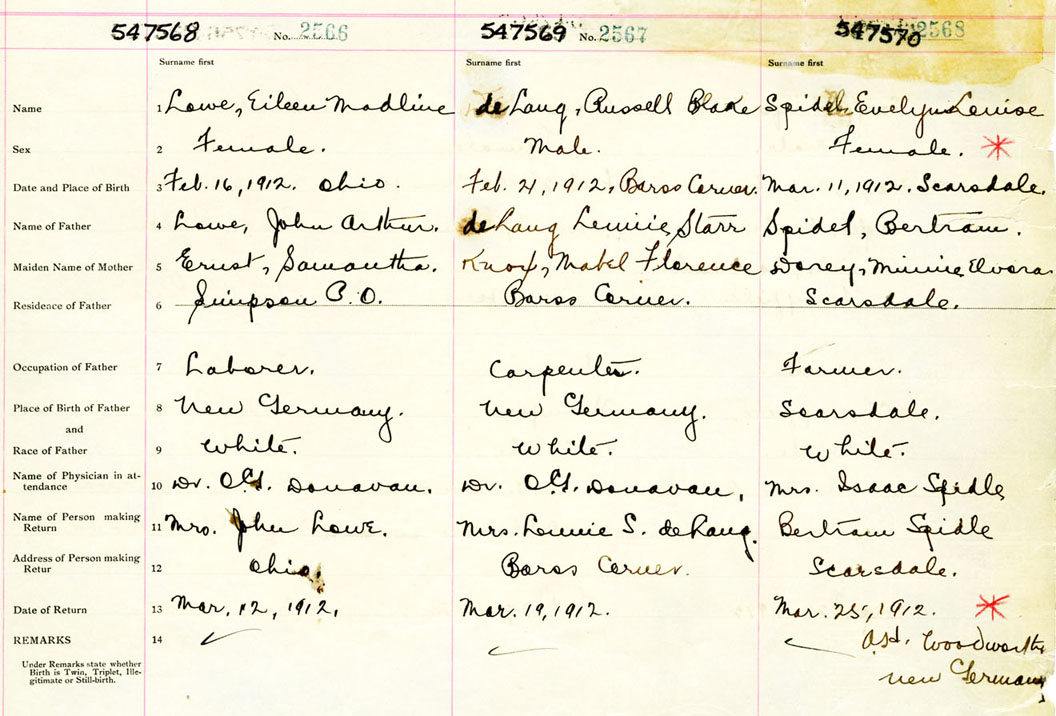 547568 No. 2566 547569 No. 2567 547570 2568
Surname first Surname first Surname first
Name 1 Lowe, Eileen Madline de Lang, Russell Blake Spidel, Evelyn Louise
Sex 2 Female. Male. Female.
Date and Place of Birth 3 Feb. 16, 1912. Ohio. Feb. 21, 1912, Barss Corner. Mar. 11, 1912. Scarsdale.
Name of Father 4 Lowe, John Arthur. de Lang Lennie Starr Spidel, Bertram.
Maiden Name of Mother 5 Ernst, Samantha. Knox, Mabel Florence Dorey, Minnie Elvora
Residence of Father 6 Simpson P.O. Barss Corner. Scarsdale.
Occupation of Father 7 Laborer. Carpenter. Farmer.
Place of Birth of Father 8 New Germany. New Germany. Scarsdale.
and
Race of Father 9 White. White. White.
Name of Physician in at-
tendance 10 Dr. Donavan. Dr. Donavan, Mrs. Isaac Spidle
Name of Person making
Return 11 Mrs. John Lowe. Mrs. Lennie S. de Lang. Bertram Spidle
Address of Person making
Retur 12 Ohio. Barss Corner. Scarsdale.
Date of Return 13 Mar. 12, 1912. Mar. 19, 1912. Mar. 25, 1912.
REMARKS 14 Woodworth
Under Remarks state whether
Birth is Twin, Triplet, Ille-
gitimate or Still-birth.
New Germany